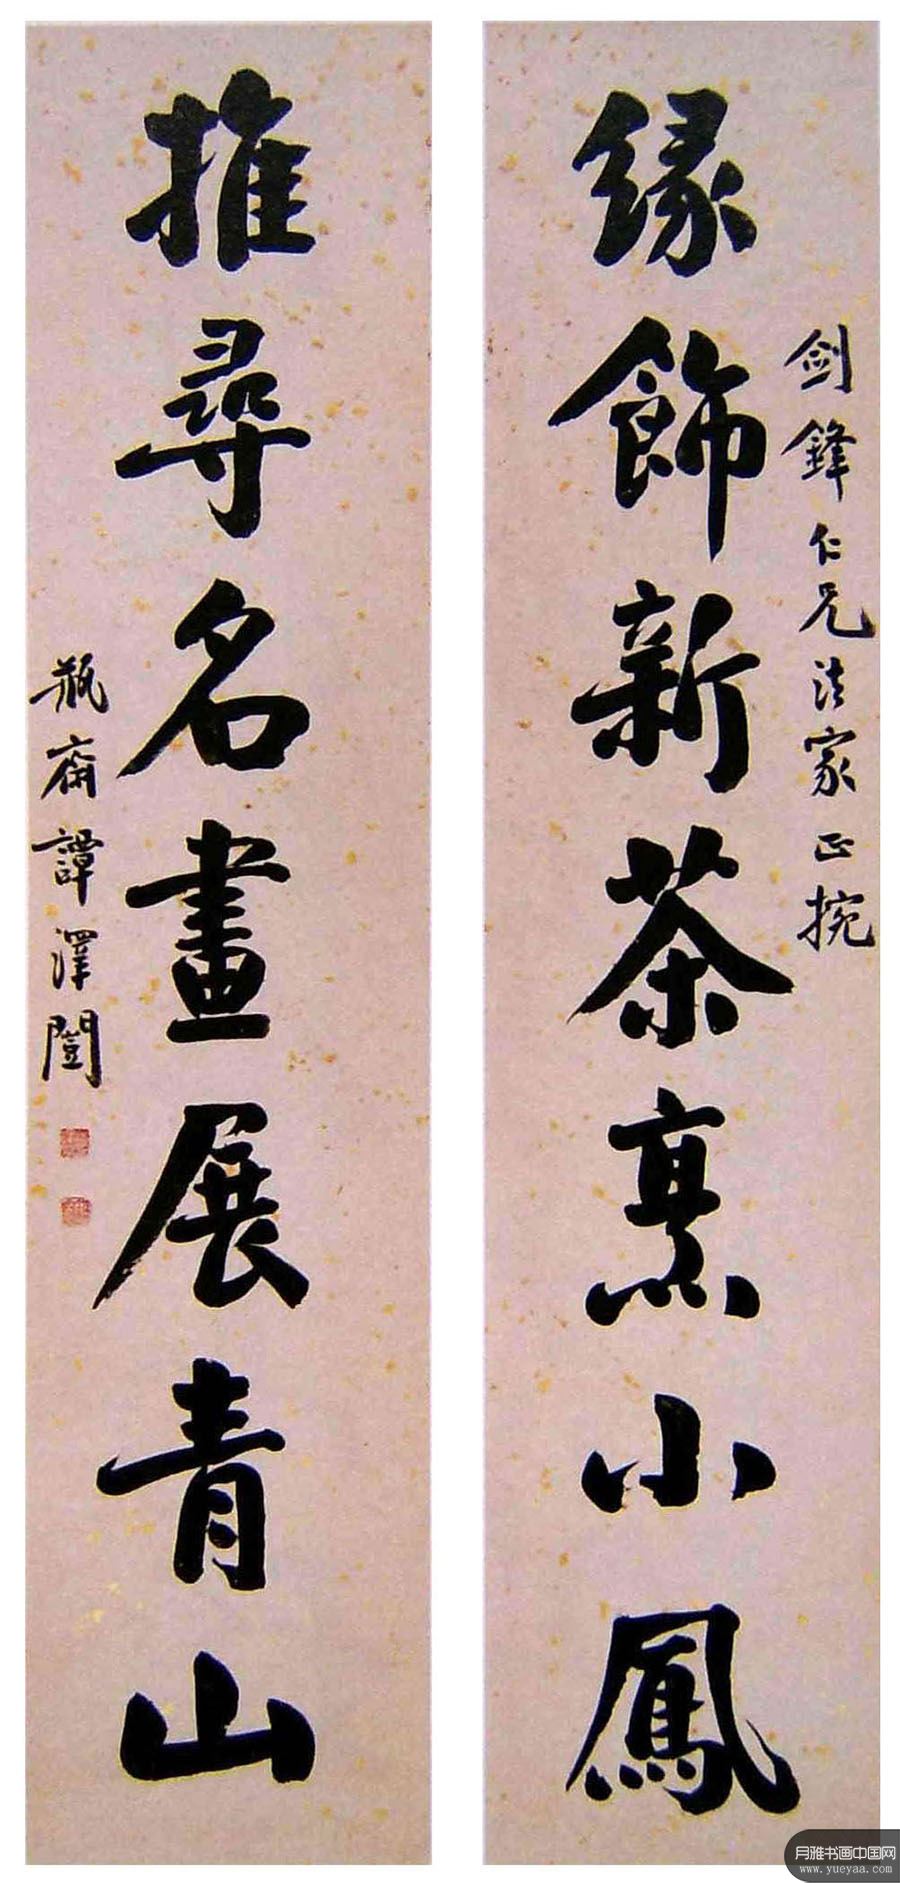 劍鋒仁兄法家正捥
緣飾新茶烹小鳳
推尋名畫展青山
瓶齋譚澤闓
月雅书画中国网
www.yueyaa.com